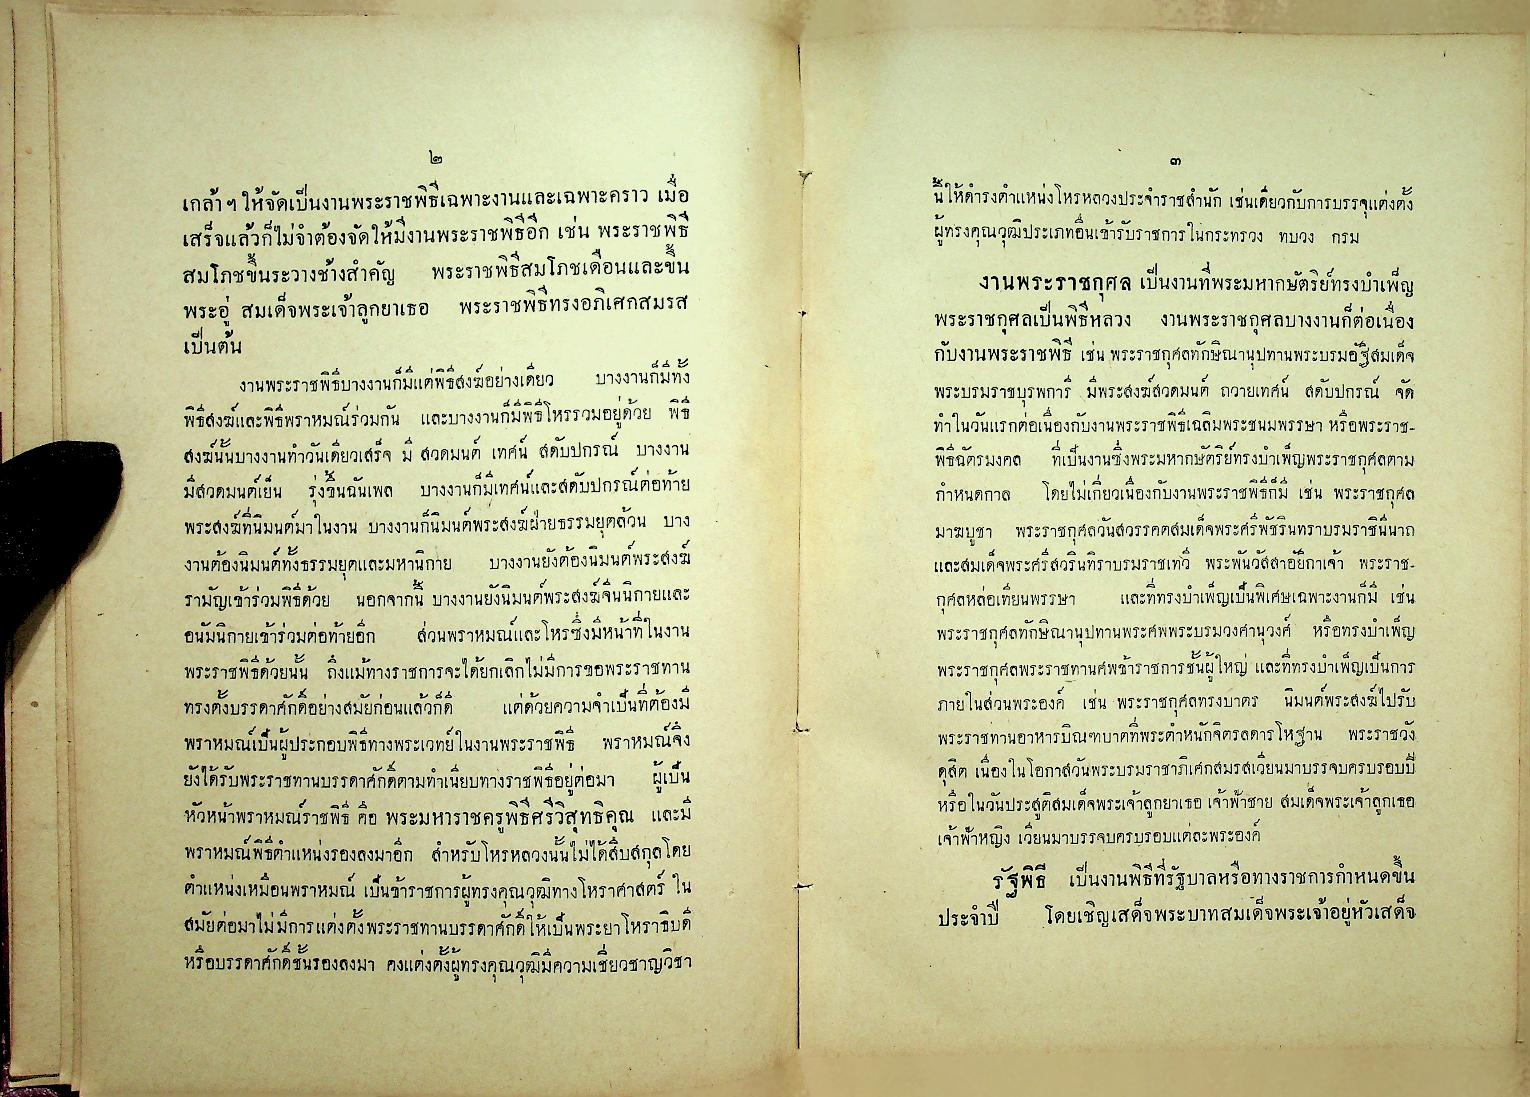 ๒
เกล้า ฯ ให้จัดเป็นงานพระราชพิธีเฉพาะงานและเฉพาะคราว เมื่อ
เสร็จแล้วก็ไม่จำต้องจัดให้มีงานพระราชพิธีอีก เช่น พระราชพิธี
สมโภชขึ้นระวางช้างสำคัญ พระราชพิธีสมโภชเดือนและขึ้น
พระอู่ สมเด็จพระเจ้าลูกยาเธอ พระราชพิธีทรงอภิเศกสมรส
เป็นต้น
งานพระราชพิธีบางงานก็มีแต่พิธีสงฆ์อย่างเดียว บางงานก็มีทั้ง
พิธีสงฆ์และพิธีพราหมณ์ร่วมกัน และบางงานก็มีพิธีโหรรวมอยู่ด้วย พิธี
สงฆ์นั้นบางงานทำวันเดียวเสร็จ มี สวดมนต์ เทศน์ สดับปกรณ์ บางงาน
มีสวดมนต์เย็น รุ่งขึ้นฉันเพล บางงานก็มีเทศน์และสดับปกรณ์ต่อท้าย
พระสงฆ์ที่นิมนต์มาในงาน บางงานก็นิมนต์พระสงฆ์ฝ่ายธรรมยุตล้วน บาง
งานต้องนิมนต์ทั้งธรรมยุตและมหานิกาย บางงานยังต้องนิมนต์พระสงฆ์
รามัญเข้าร่วมพิธีด้วย นอกจากนี้ บางงานยังนิมนต์พระสงฆ์จีนนิกายและ
อนัมนิกายเข้าร่วมต่อท้ายอีก ส่วนพราหมณ์และโหรซึ่งมีหน้าที่ในงาน
พระราชพิธีด้วยนั้น ถึงแม้ทางราชการจะได้ยกเลิกไม่มีการขอพระราชทาน
ทรงตั้งบรรดาศักดิ์อย่างสมัยก่อนแล้วก็ดี แต่ด้วยความจำเป็นที่ต้องมี
พราหมณ์เป็นผู้ประกอบพิธีทางพระเวทย์ในงานพระราชพิธี พราหมณ์จึง
ยังได้รับพระราชทานบรรดาศักดิ์ตามทำเนียบทางราชพิธีอยู่ต่อมา ผู้เป็น
หัวหน้าพราหมณ์ราชพิธี คือ พระมหาราชครูพิธีศรีวิสุทธิคุณ และมี
พราหมณ์พิธีตำแหน่งรองลงมาอีก สำหรับโหรหลวงนั้นไม่ได้สืบสกุลโดย
ตำแหน่งเหมือนพราหมณ์ เป็นข้าราชการผู้ทรงคุณวุฒิทางโหราศาสตร์ ใน
สมัยต่อมาไม่มีการแต่งตั้งพระราชทานบรรดาศักดิ์ให้เป็นพระยาโหราธิบดี
หรือบรรดาศักดิ์ชั้นรองลงมา คงแต่งตั้งผู้ทรงคุณวุฒิมีความเชี่ยวชาญวิชา
๓
นี้ให้ดำรงตำแหน่งโหรหลวงประจำราชสำนัก เช่นเดียวกับการบรรจุแต่งตั้ง
ผู้ทรงคุณวุฒิประเภทอื่นเข้ารับราชการในกระทรวง ทบวง กรม
งานพระราชกุศล เป็นงานที่พระมหากษัตริย์ทรงบำเพ็ญ
พระราชกุศลเป็นพิธีหลวง งานพระราชกุศลบางงานก็ต่อเนื่อง
กับงานพระราชพิธี เช่น พระราชกุศลทักษิณานุปทานพระบรมอัฐิสมเด็จ
พระบรมราชบุรพการี มีพระสงฆ์สวดมนต์ ถวายเทศน์ สดับปกรณ์ จัด
ทำในวันแรกต่อเนื่องกับงานพระราชพิธีเฉลิมพระชนมพรรษา หรือพระราช-
พิธีฉัตรมงคล ที่เป็นงานซึ่งพระมหากษัตริย์ทรงบำเพ็ญพระราชกุศลตาม
กำหนดกาล โดยไม่เกี่ยวเนื่องกับงานพระราชพิธีก็มี เช่น พระราชกุศล
มาฆบูชา พระราชกุศลวันสวรรคตสมเด็จพระศรีพัชรินทราบรมราชินีนาถ
และสมเด็จพระศรีสวรินทิราบรมราชเทวี พระพันวัสสาอัยิกาเจ้า พระราช-
กุศลหล่อเทียนพรรษา และที่ทรงบำเพ็ญเป็นพิเศษเฉพาะงานก็มี เช่น
พระราชกุศลทักษิณานุปทานพระศพพระบรมวงศานุวงศ์ หรือทรงบำเพ็ญ
พระราชกุศลพระราชทานศพข้าราชการชั้นผู้ใหญ่ และที่ทรงบำเพ็ญเป็นการ
ภายในส่วนพระองค์ เช่น พระราชกุศลทรงบาตร นิมนต์พระสงฆ์ไปรับ
พระราชทานอาหารบิณฑบาตที่พระตำหนักจิตรลดารโหฐาน พระราชวัง
ดุสิต เนื่องในโอกาสวันพระบรมราชาภิเศกสมรสเวียนมาบรรจบครบรอบปี
หรือในวันประสูติสมเด็จพระเจ้าลูกยาเธอ เจ้าฟ้าชาย สมเด็จพระเจ้าลูกเธอ
เจ้าฟ้าหญิง เวียนมาบรรจบครบรอบแต่ละพระองค์
รัฐพิธี เป็นงานพิธีที่รัฐบาลหรือทางราชการกำหนดขึ้น
ประจำปี โดยเชิญเสด็จพระบาทสมเด็จพระเจ้าอยู่หัวเสด็จ